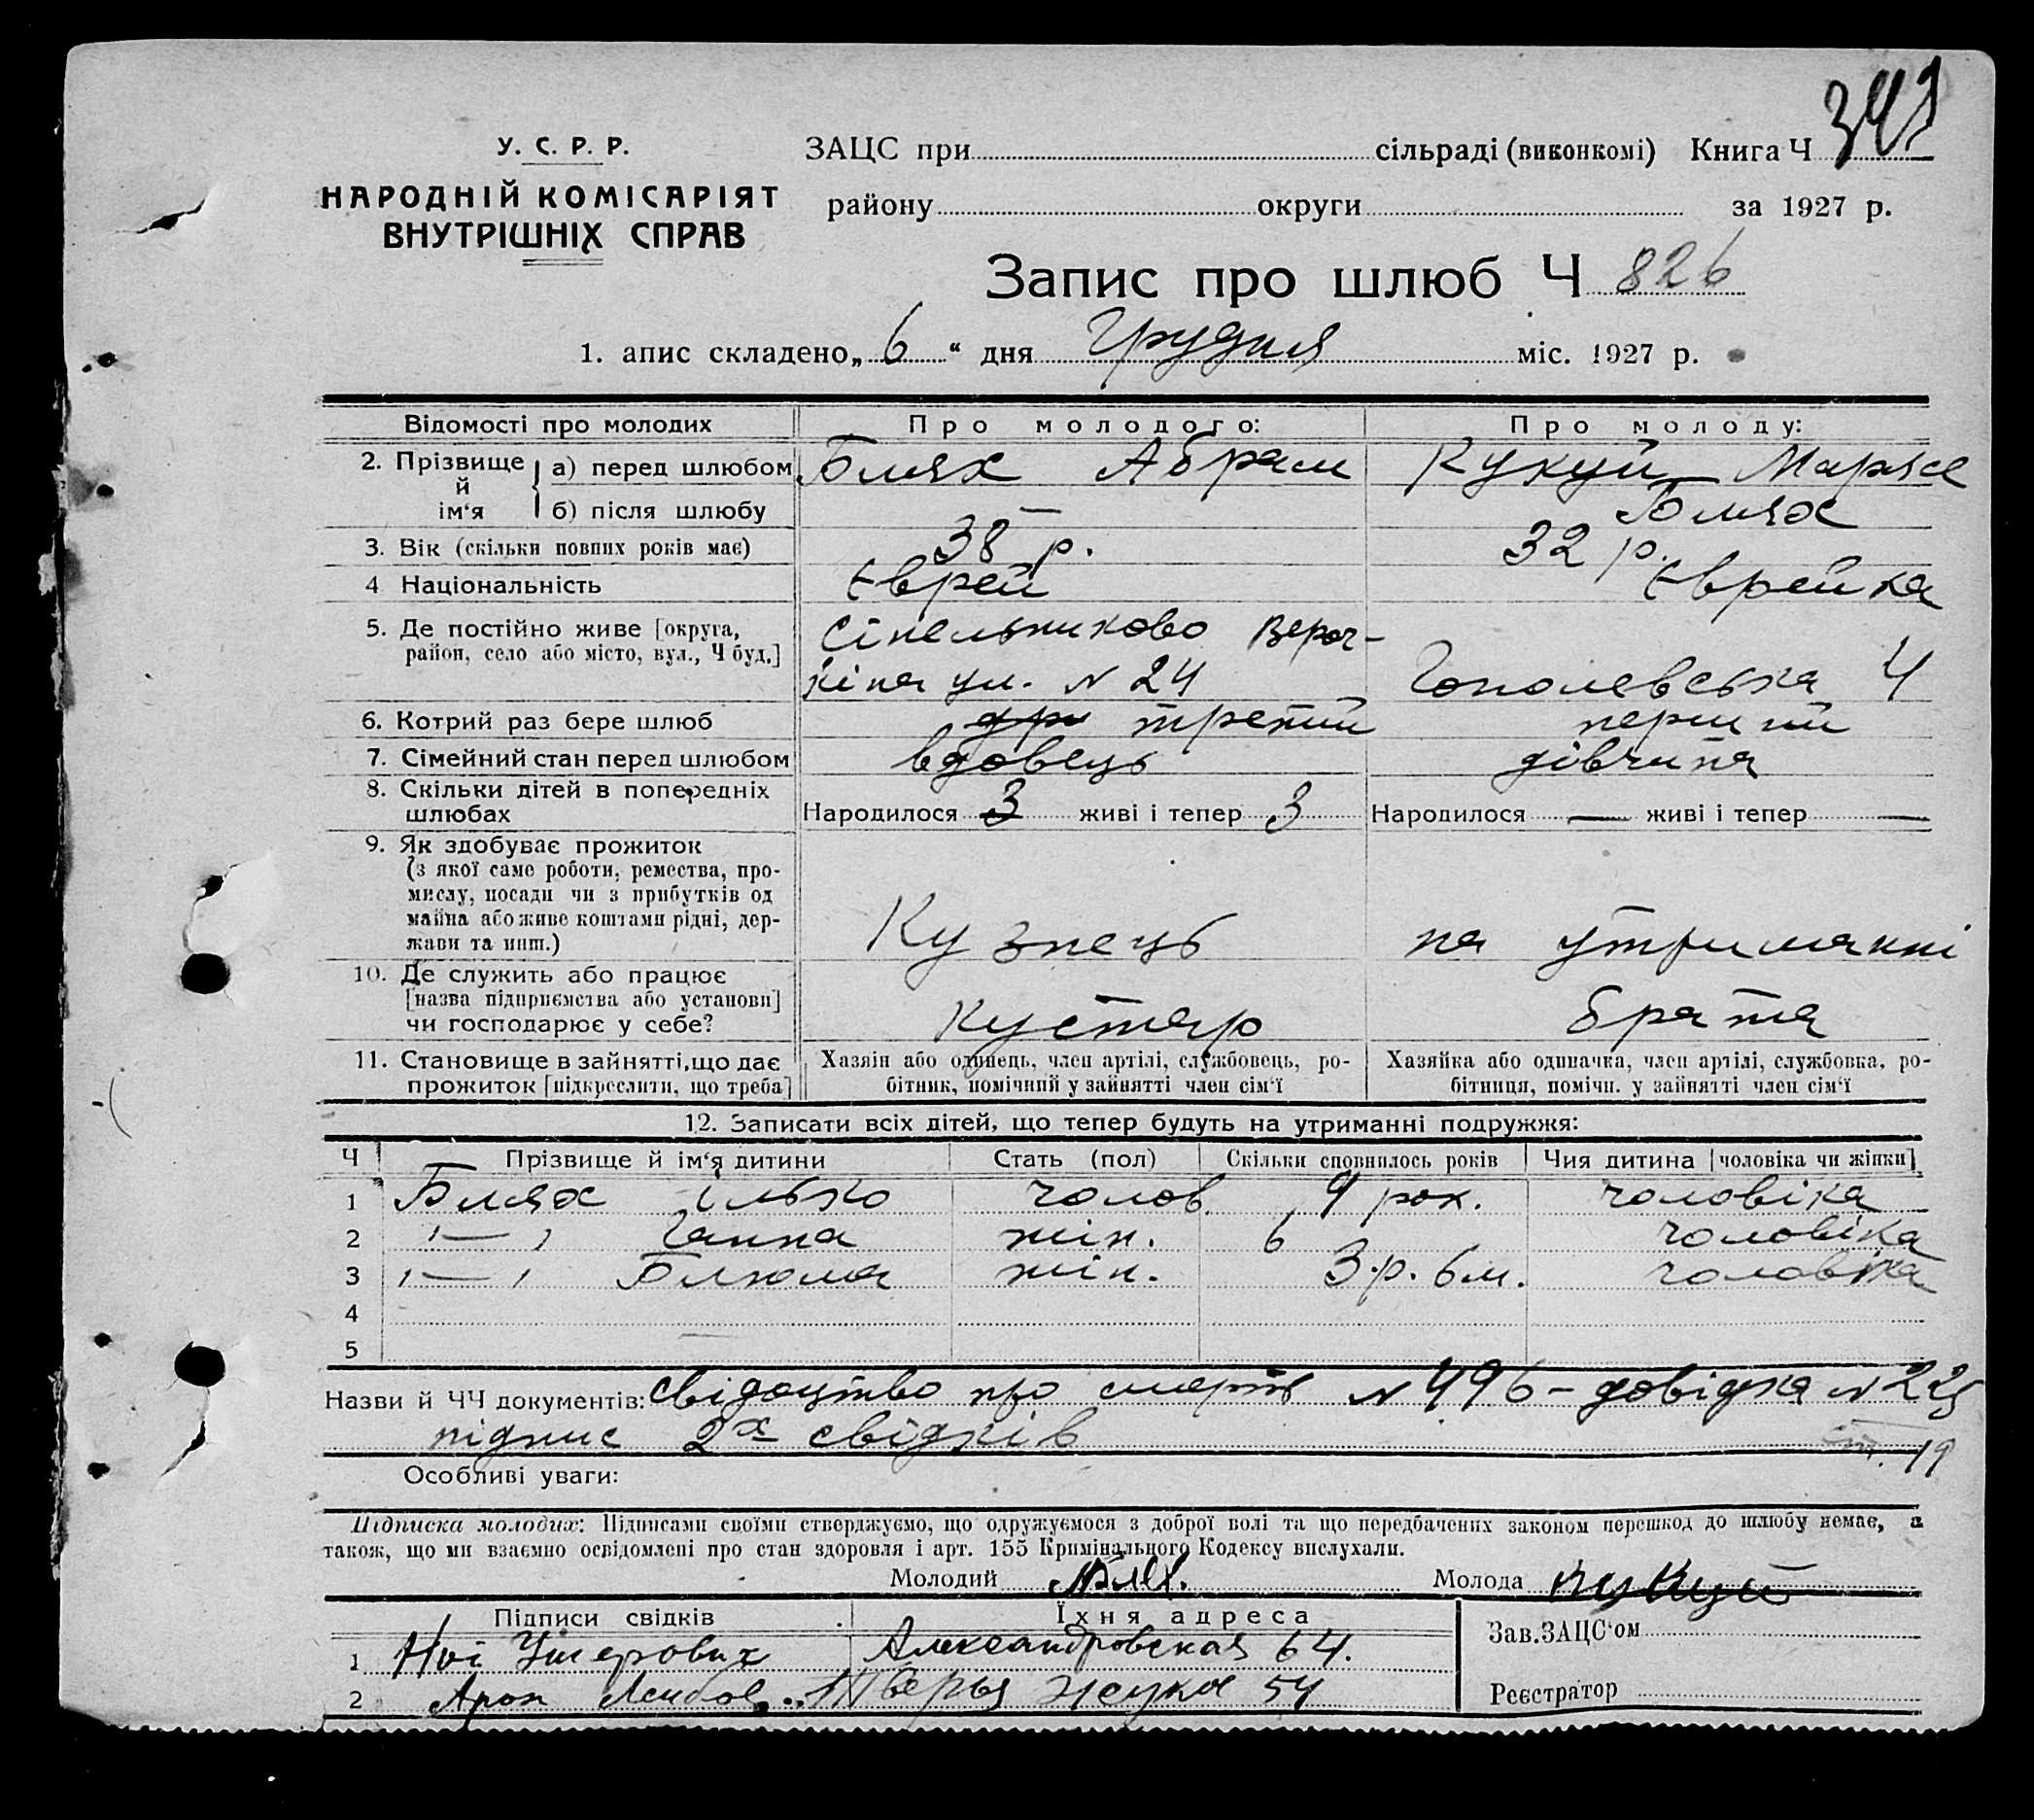 341
У. С. Р. Р.
НАРОДНІЙ КОМІСАРІЯТ
ВНУТРІШНІХ СПРАВ
ЗАЦС при сільраді (виконкомі) Книга Ч
району округи за 1927 р.
Запис про шлюб Ч 826
1. апис складено „ 6 “ дня Грудня міс. 1927 р.
Відомості про молодих Про молодого: Про молоду:
2. Прізвище й ім‘я а) перед шлюбом Блях Абрам Кукуй Марія
б) після шлюбу — Блях
3. Вік (скільки повних років має) 38 р. 32 р.
4 Національність Єврей Єврейка
5. Де постійно живе [округа, Сінельниково
район, село або місто, вул., Ч буд.] ул. N 24 4
6. Котрий раз бере шлюб третий перший
7. Сімейний стан перед шлюбом вдовець дівчина
8. Скільки дітей в попередніх
шлюбах Народилося 3 живі і тепер 3 Народилося — живі і тепер —
9. Як здобуває прожиток
(з якої саме роботи, ремества, про-
мислу, посади чи з прибутків од
майна або живе коштами рідні, дер-
жави та инш.) Кузнець на утриманні
10. Де служить або працює
[назва підприємства або установи]
чи господарює у себе? кустар брата
11. Становище в зайнятті, що дає
прожиток [підкреслити, що треба]
Хазяїн або одинець, член артілі, службовець, ро-
бітник, помічний у зайнятті член сім‘ї
Хазяйка або одиначка, член артілі, службовка, ро-
бітниця, помічн. у зайнятті член сім‘ї
12. Записати всіх дітей, що тепер будуть на утриманні подружжя:
Ч Прізвище й ім‘я дитини Стать (пол) Скільки сповнилось років Чия дитина [чоловіка чи жінки]
1 Блях Ілько чолов. 9 рок. чоловіка
2 -"- Ганна жін. 6 чоловіка
3 -"- Блюма жін. 3.р. 6 м. чоловіка
4
5
Назви й ЧЧ документів: свідоцтво про смерть N 496 - довідка N 225
підпис 2х свідків 19
Особливі уваги:
Підписка молодих: Підписами своїми стверджуємо, що одружуємося з доброї волі та що передбачених законом перешкод до шлюбу немає, а
також, що ми взаємно освідомлені про стан здоровля і арт. 155 Кримінального Кодексу вислухали.
Молодий Молода Кукуй
Підписи свідків Їхня адреса
1 Александровская 64.
2 Арон 54
Зав. ЗАЦС‘ом
Реєстратор